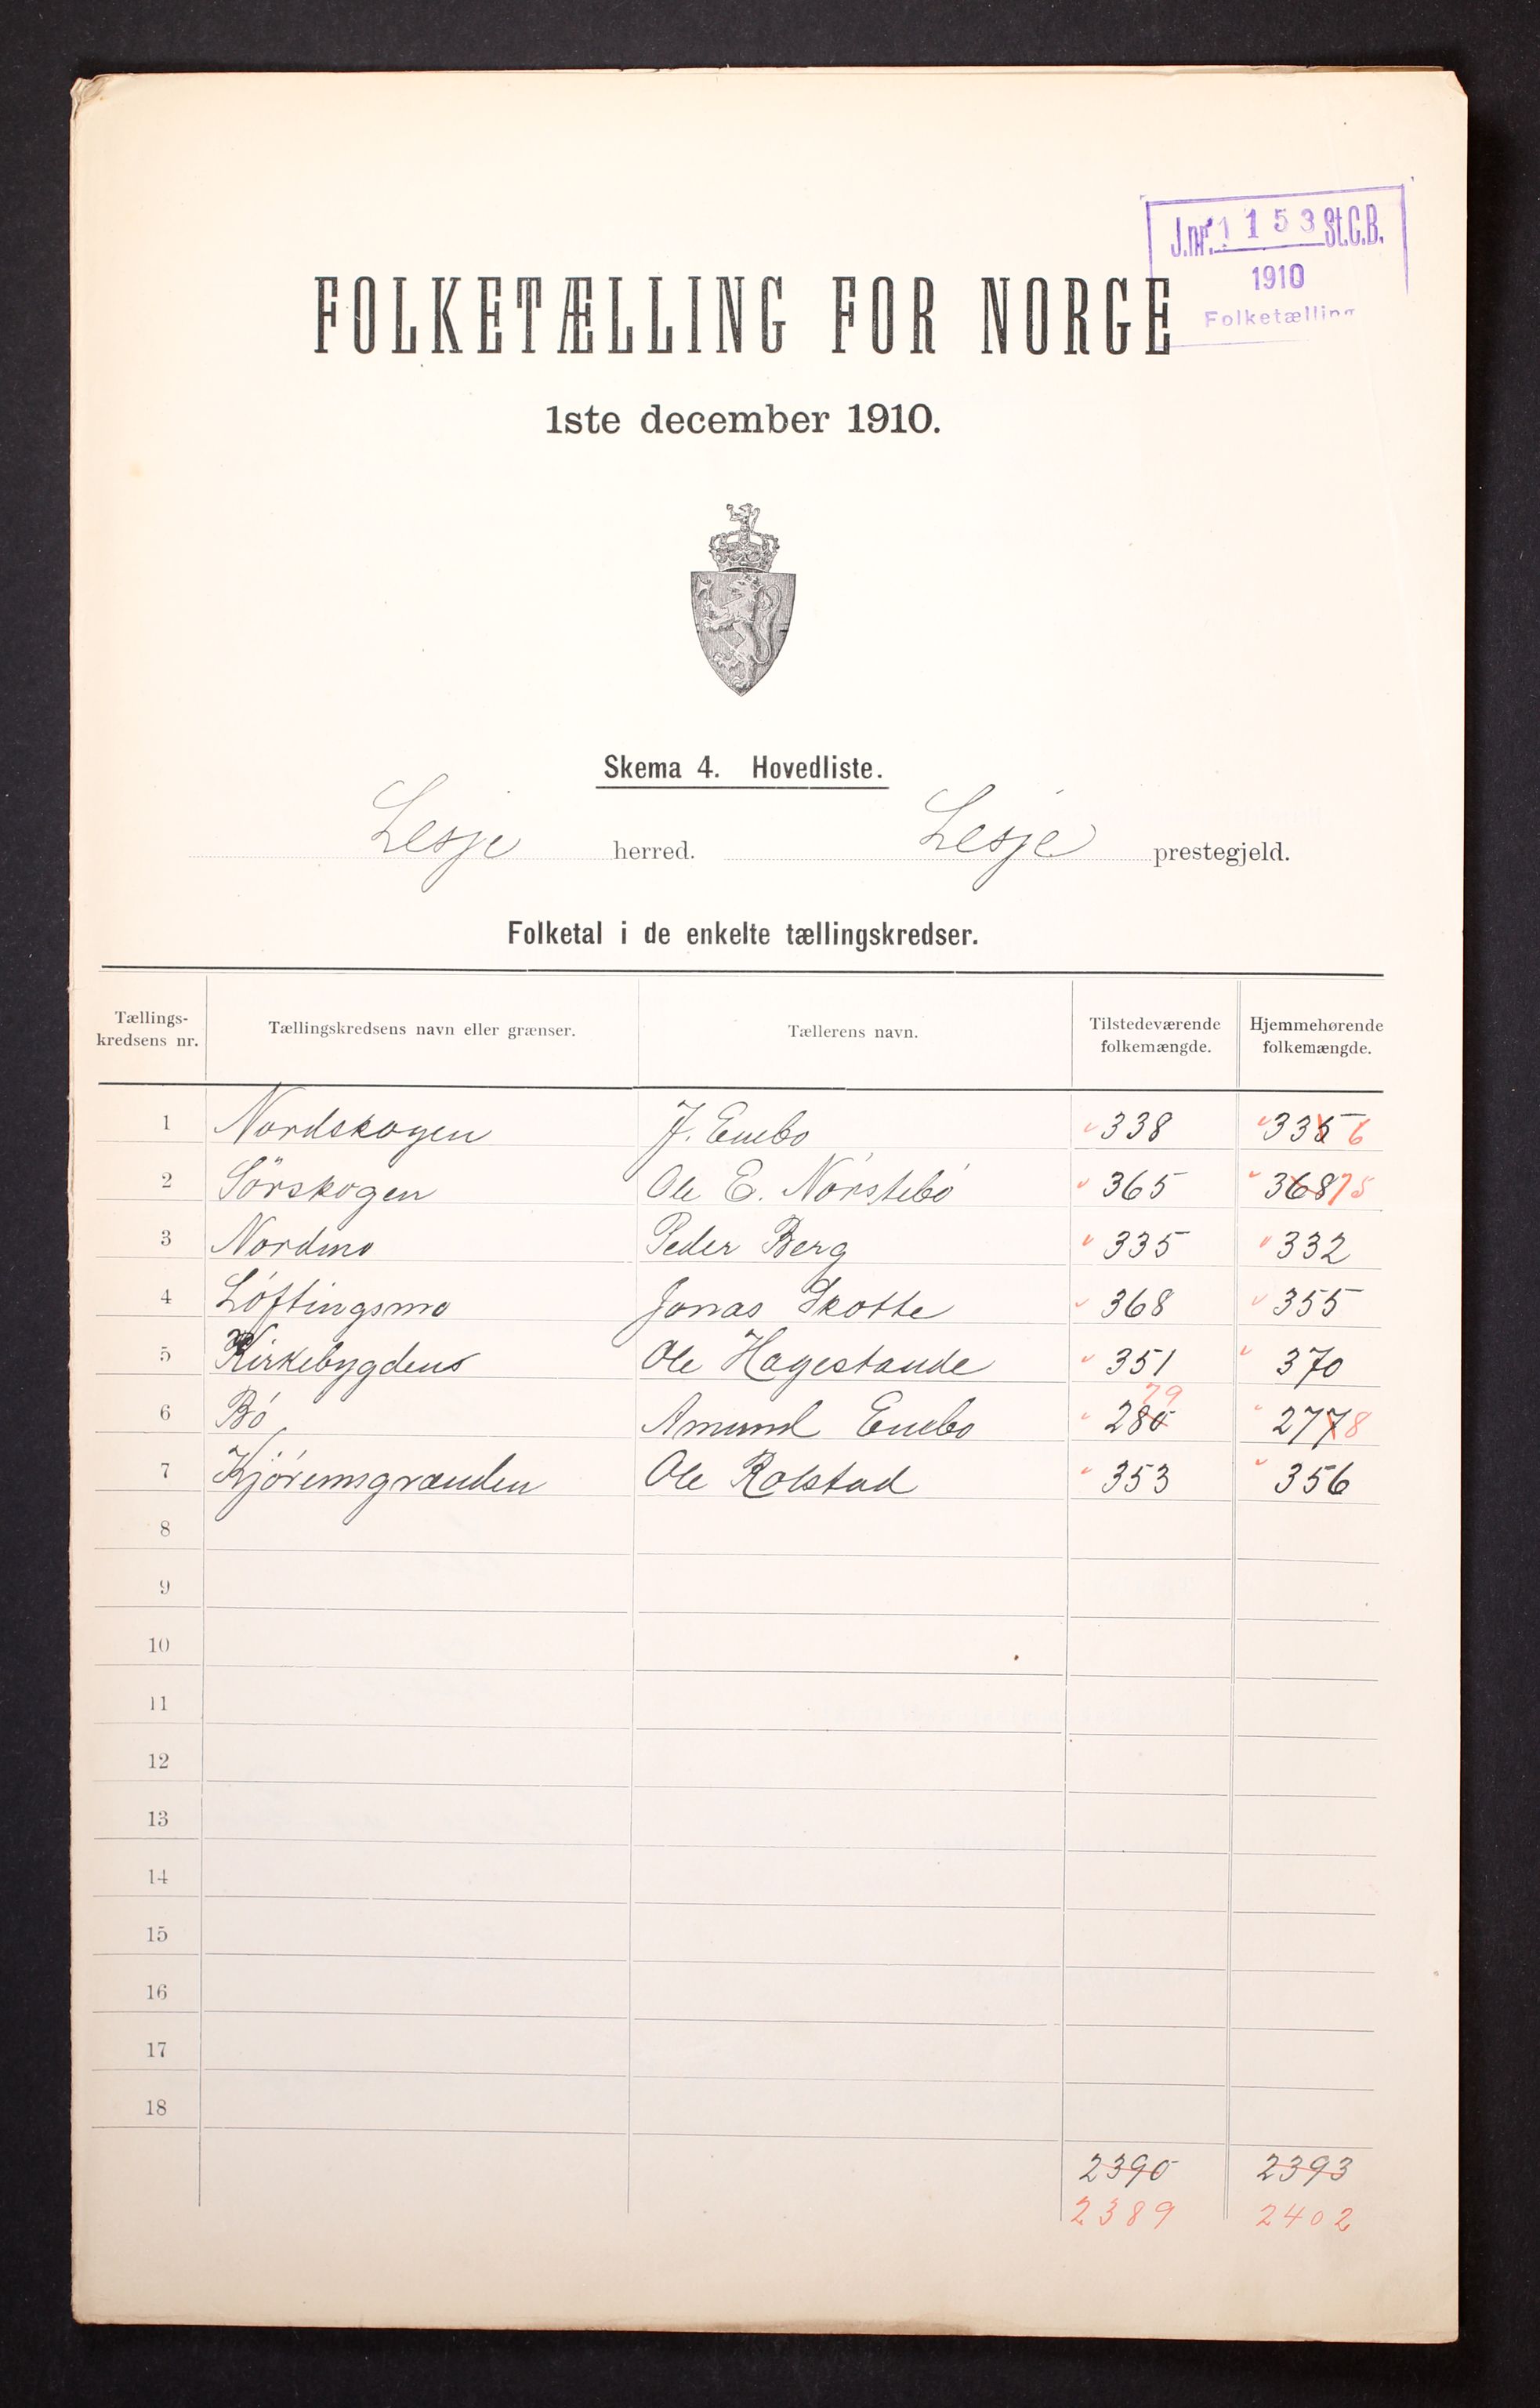 J.nr. 1153 St.C.B.
1910
Folketælling
FOLKETÆLLING FOR NORGE
1ste december 1910.
Skema 4. Hovedliste.
Lesje herred. Lesje prestegjeld.
Folketal i de enkelte tællingskredser.
Tællings-kredsens nr. Tællingskredsens navn eller grænser. Tællerens navn. Tilstedeværende folkemængde. Hjemmehørende folkemængde.
1 Nordskogen J. Enebo 338 335 6
2 Sörskogen Ole E. Nórstebó 365 368 75
3 Nordmo Peder Berg 335 332
4 Lóftingsmo Jonas Skotte 368 355
5 Kirkebygdens Ole Hagestande 351 370
6 Bó Amund Enebo 280 79 277 8
7 Kjóremsgrænden Ole Rolstad 353 356
8
9
10
11
12
13
14
15
16
17
18
2390 2393
2389 2402